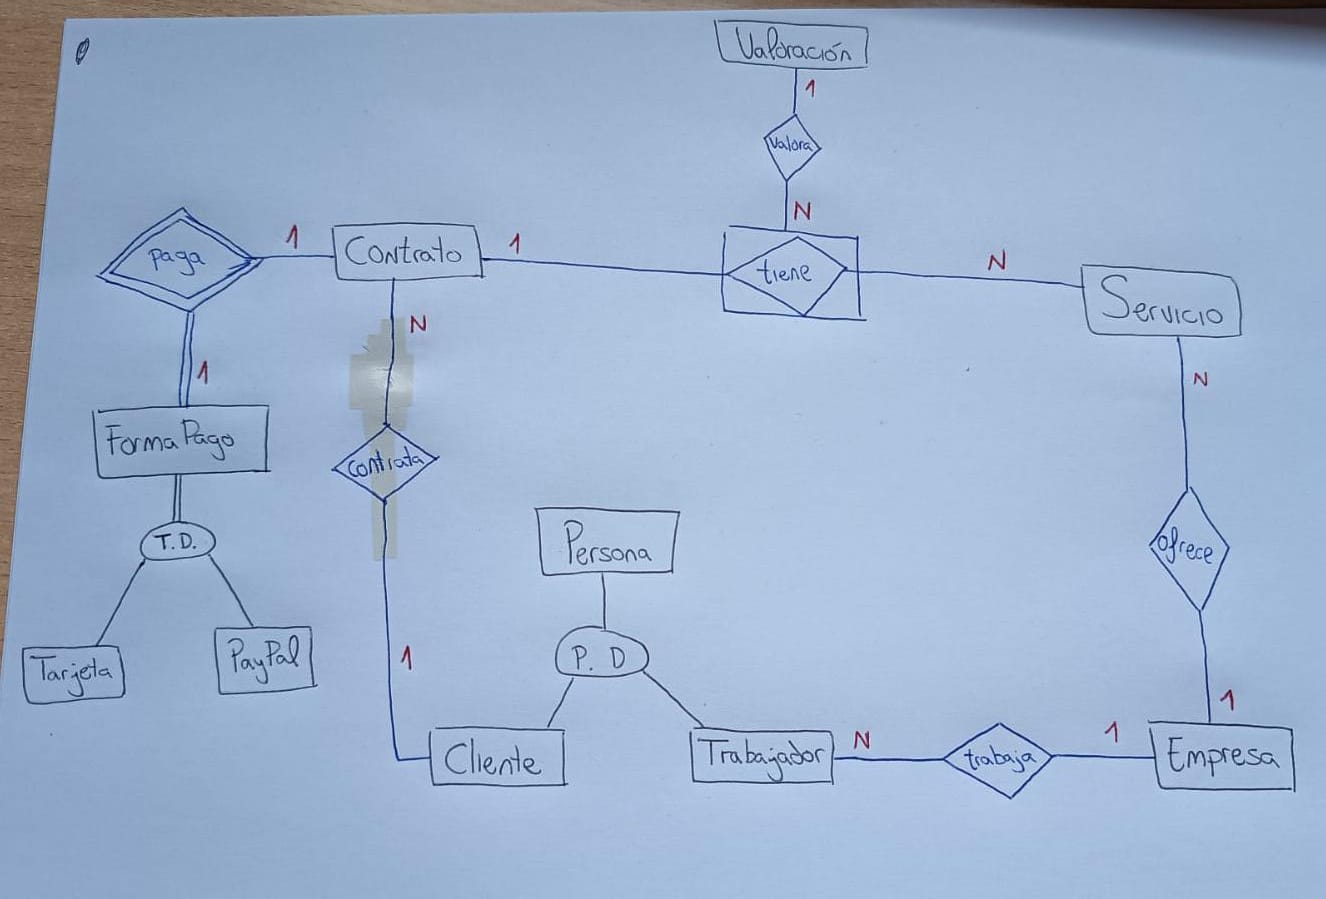 Valoración
1
Valora
N
paga
1
Contrato
1
tiene
N
Servicio
N
1
N
Forma Pago
contrata
T.D.
Persona
ofrece
Tarjeta
PayPal
1
P. D
1
Cliente
Trabajador
N
trabaja
1
Empresa